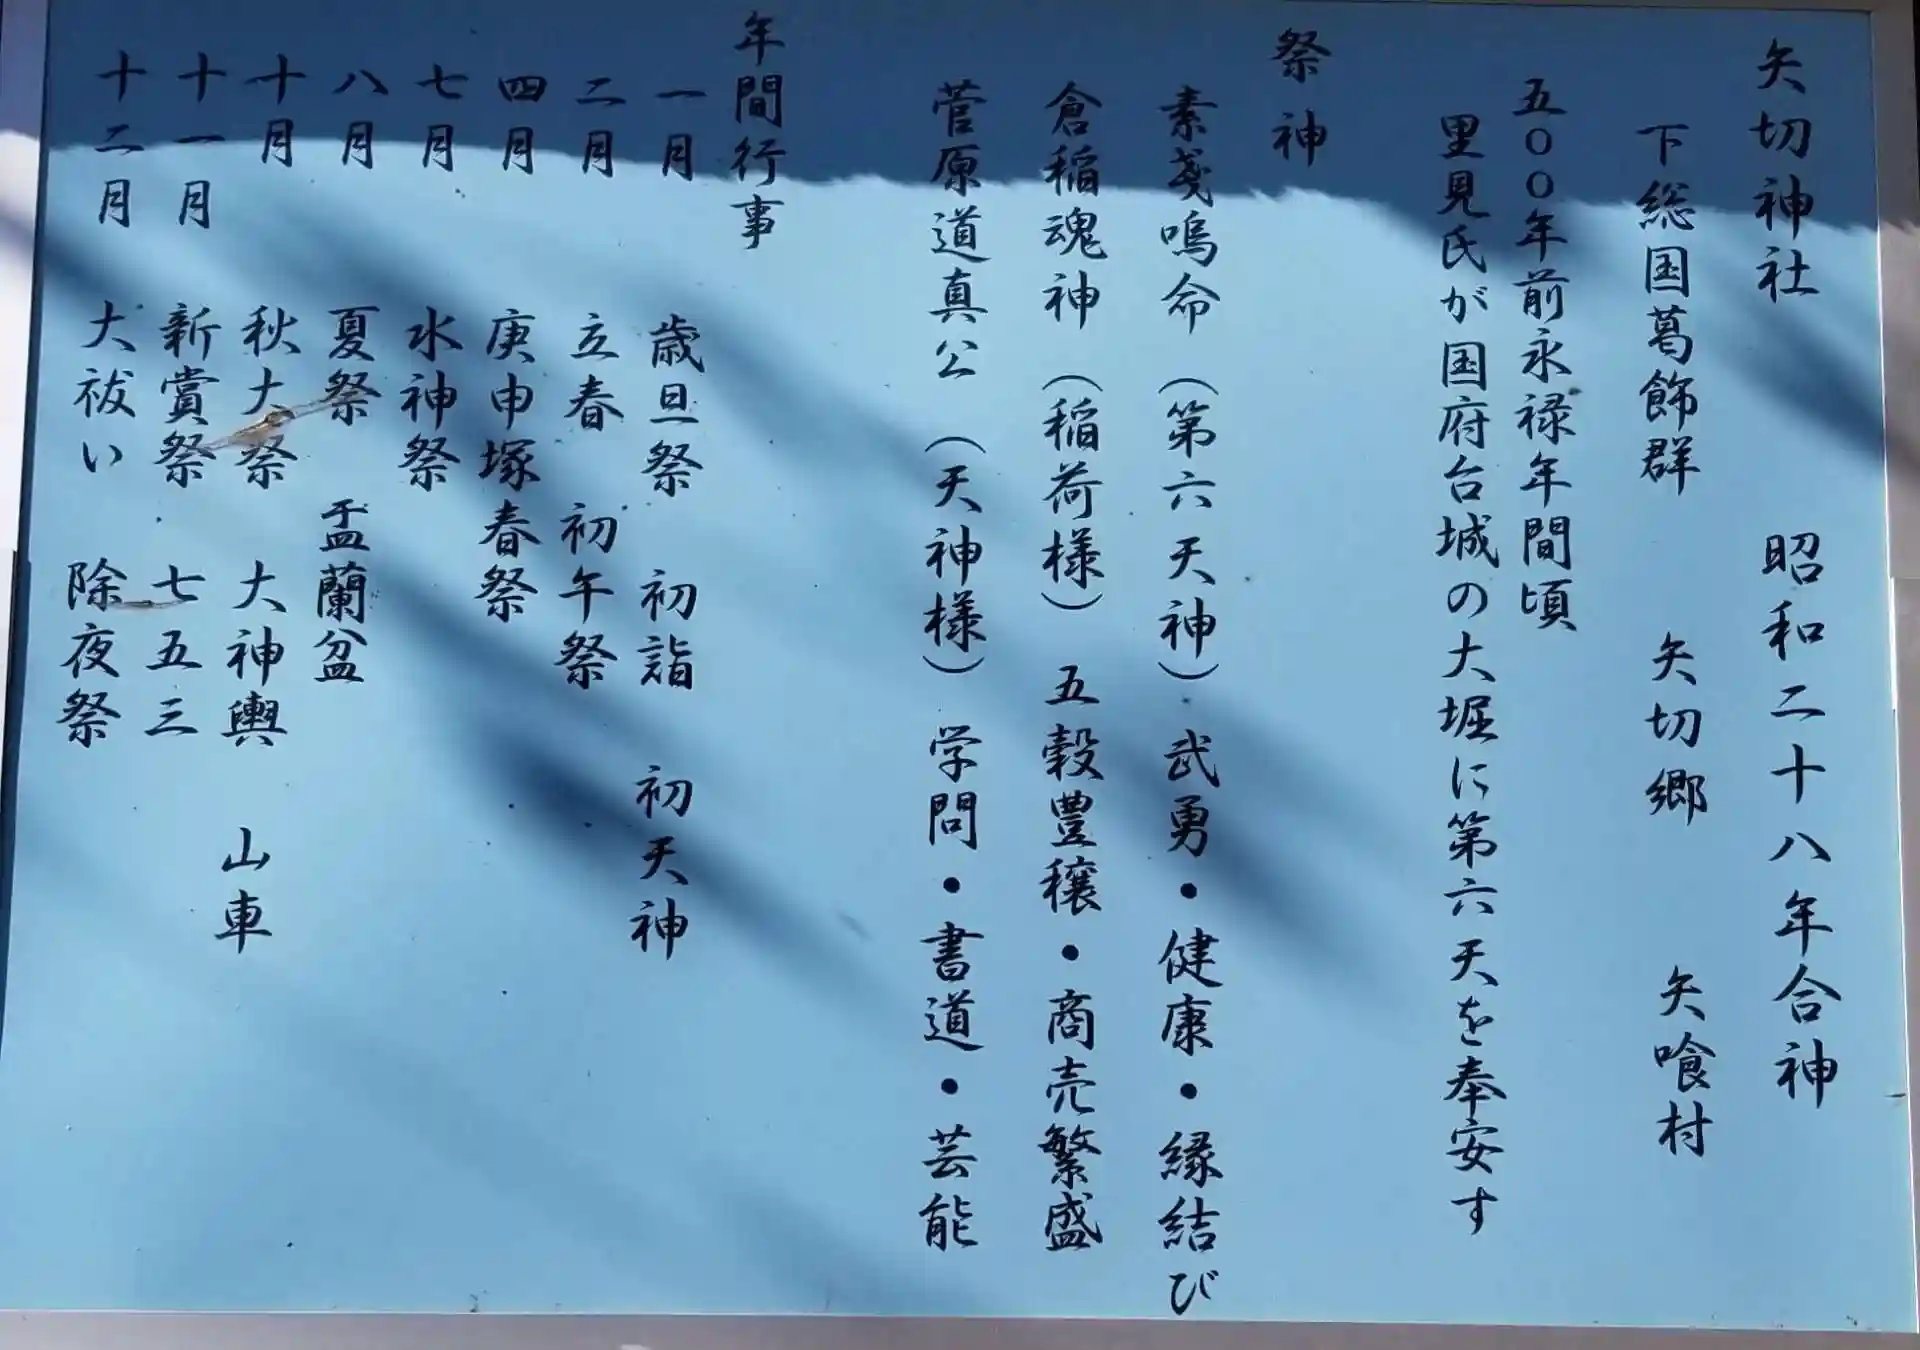 矢切神社　昭和二十八年合神
下総国葛飾群　矢切郷　矢喰村
五〇〇年前永禄年間頃
里見氏が国府台城の大堀に第六天を奉安す
祭神
素戔嗚命（第六天神）武勇・健康・縁結び
倉稲魂神（稲荷様）五穀豊穣・商売繁盛
菅原道真公（天神様）学問・書道・芸能
年間行事
一月　歳旦祭　初詣　初天神
二月　立春　初午祭
四月　庚申塚春祭
七月　水神祭
八月　夏祭　盂蘭盆
十月　秋大祭　大神輿　山車
十一月　新賞祭　七五三
十二月　大祓い　除夜祭